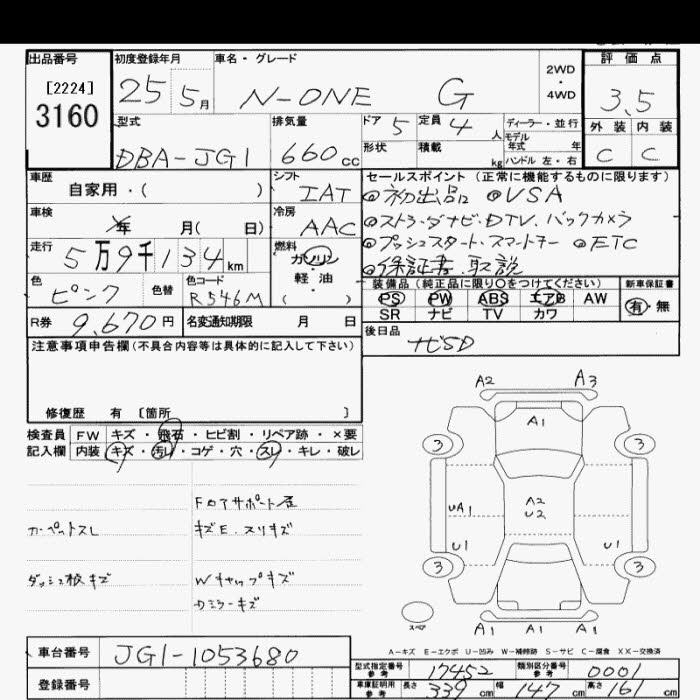 出品番号 初度登録年月 車名・グレード 2WD・4WD 評価点
[2224]
3160
25 5月 N-ONE G 3.5
型式 排気量 ドア 5 定員 4人 ディーラー・並行 外装 内装
モデル年式 年
DBA-JG1 660cc 形状 積載 kg ハンドル 左・右 C C
車歴 シフト セールスポイント (正常に機能するものに限ります)
自家用・( ) IAT ◎初出品 ◎VSA
車検 年 月( 日) 冷房 AAC ◎ストラーダナビ・DTV.バックカメラ
走行 5万9千134km 燃料 ガソリン ◎プッシュスタート・スマートキー ◎ETC
軽・油 ◎保証書.取説
( )
色 ピンク 色替 色コード R546M 装備品(純正品に限り○をつけてください) 新車保証書
PS PW ABS エアB AW 有・無
SR ナビ TV カワ
R券 9,670円 名変通知期限 月 日 後日品
ナビSD
注意事項申告欄(不具合内容等は具体的に記入して下さい)
修復歴 有 [箇所 ]
検査員 FW キズ・飛石・ヒビ割・リペア跡・×要
記入欄 内装 キズ・汚レ・コゲ・穴・スレ・キレ・破レ
FロアサポートP
カーペットスレ キズE.スリキズ
ダッシュ板キズ Wキャップキズ
Dミラーキズ
A2 A3
A1
3 3
UA1 A2
U2
U1 U1
3 3
スペア A1 A1 A1
A-キズ E-エクボ U-凹み W-補修跡 S-サビ C-腐食 XX-交換済
車台番号 JG1-1053680 型式指定番号 参考 17452 類別区分番号 参考 0001
登録番号 車庫証明用 参考 長さ 339cm 幅 147cm 高さ 161cm